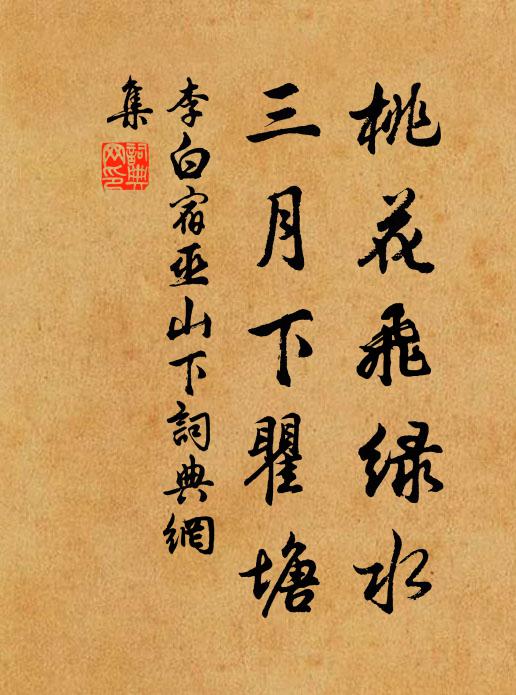 桃花飛緑水
三月下瞿塘
李白宿巫山下詞典網
集
詞典
網印